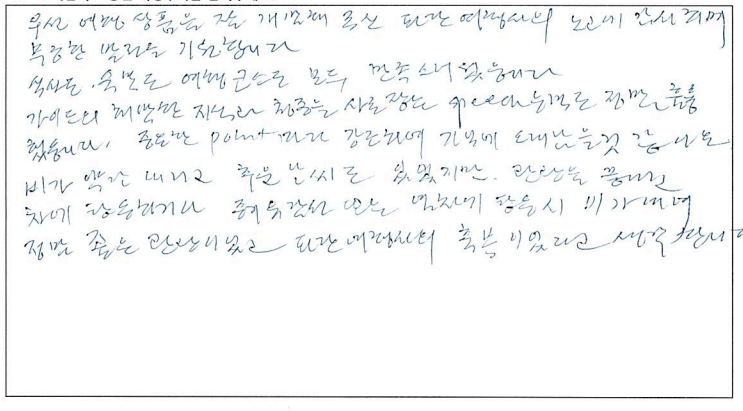 우선 여행 상품을 잘 개발해 주신 파란여행사의 노고에 감사하며
무궁한 발전을 기원합니다
식사도 숙박도 여행코스도 모두 만족스러웠습니다
가이드의 해박한 지식과 청중을 사로잡는 speech능력도 정말 훌륭
했습니다. 중요한 point마다 강조하여 기억에 오래남을것 같아요
비가 약간 내리고 추운 날씨도 있었지만. 관광을 끝내고
차에 탑승하거나 탑승시 비가 내려
정말 좋은 관광이었고 파란여행사의 축복이었다고 생각합니다